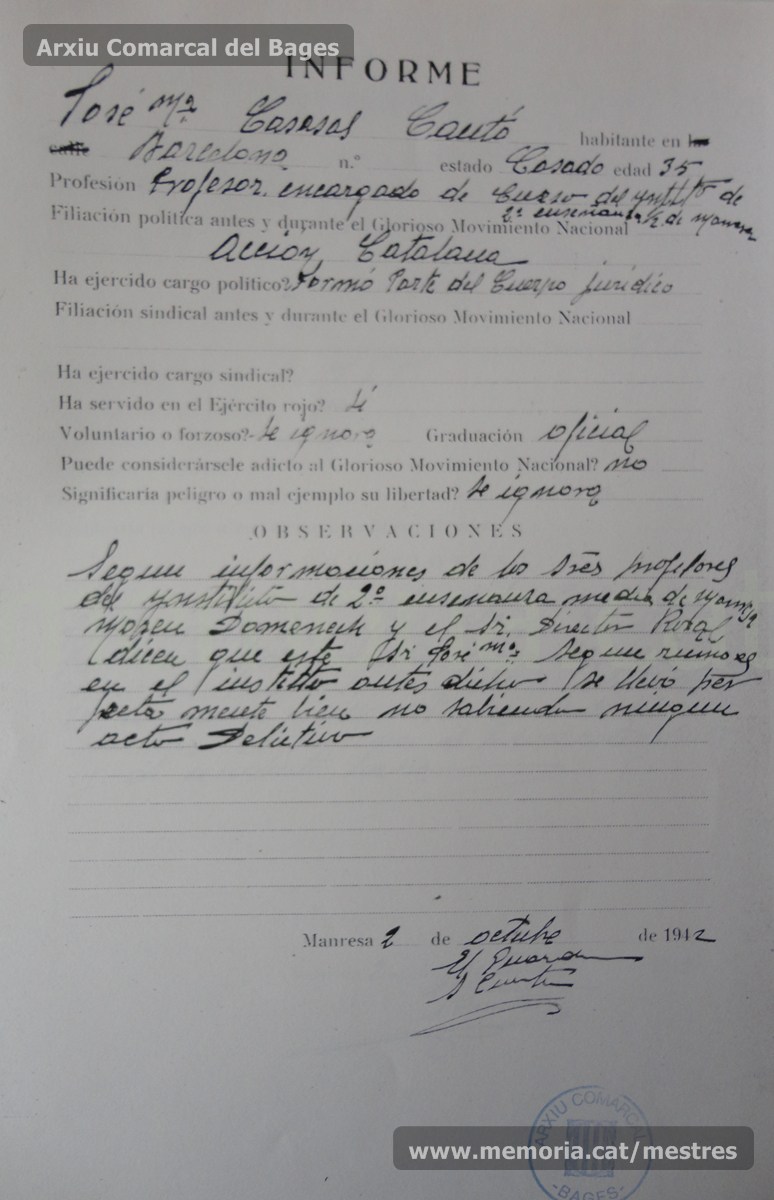 Arxiu Comarcal del Bages
INFORME
José Mª Casasas Cantó habitante en la
calle Barcelona n.º estado Casado edad 35
Profesión Profesor encargado de Curso del Ynstitº de
2ª ensenansa de Manresa
Filiación política antes y durante el Glorioso Movimiento Nacional
Accion Catalana
Ha ejercido cargo político? Formó Parte del Cuerpo juridico
Filiación sindical antes y durante el Glorioso Movimiento Nacional
Ha ejercido cargo sindical?
Ha servido en el Ejército rojo? si
Voluntario o forzoso?- se ignora Graduación oficial
Puede considerársele adicto al Glorioso Movimiento Nacional? no
Significaría peligro o mal ejemplo su libertad? se ignora
OBSERVACIONES
Segun informaciones de los tres profesores
del Ynstituto de 2ª ensenansa media de
Mosen Domenech y el Sr. Director
dicen que este Sr José Mª segun rumores
en el instituto antes dicho se llevó per
fecta mente bien no sabiendo ningun
acto Delictivo
Manresa 2 de octubre de 1942
El Guardia
ARXIU COMARCAL
- BAGES -
www.memoria.cat/mestres